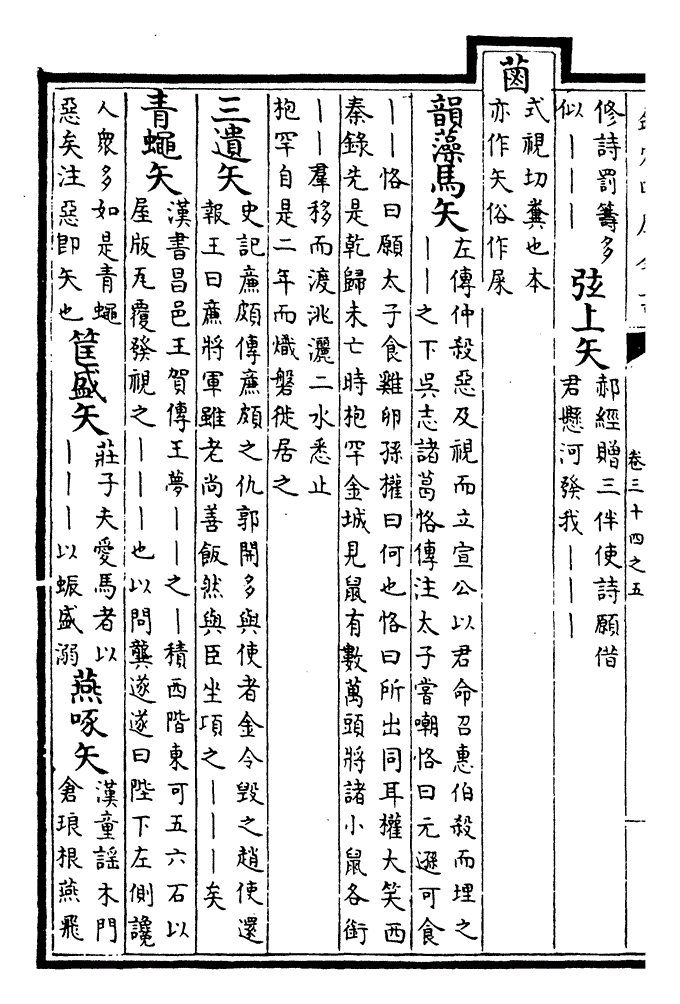 卷三十四之五
修詩罰籌多
似｜｜｜
弦上矢
郝經贈三伴使詩願借
君懸河發我｜｜｜
式視切糞也本
亦作矢俗作屎
韻藻馬矢
左傳仲殺惡及視而立宣公以君命召惠伯殺而埋之
｜｜之下吳志諸葛恪傳注太子嘗嘲恪曰元遜可食
｜｜恪曰願太子食雞卵孫權曰何也恪曰所出同耳權大笑西
秦錄先是乾歸未亡時抱罕金城見鼠有數萬頭將諸小鼠各銜
｜｜羣移而渡洮灑二水悉止
抱罕自是二年而熾磐徙居之
三遺矢
史記廉頗傳廉頗之仇郭開多與使者金令毀之趙使還
報王曰廉將軍雖老尚善飯然與臣坐項之｜｜｜矣
青蠅矢
漢書昌邑王賀傳王夢｜｜之｜積西階東可五六石以
屋版瓦覆發視之｜｜｜也以問龔遂遂曰陛下左側讒
人衆多如是青蠅
惡矣注惡即矢也
筐盛矢
莊子夫愛馬者以
｜｜｜以蜄盛溺
燕啄矢
漢童謡木門
倉琅根燕飛